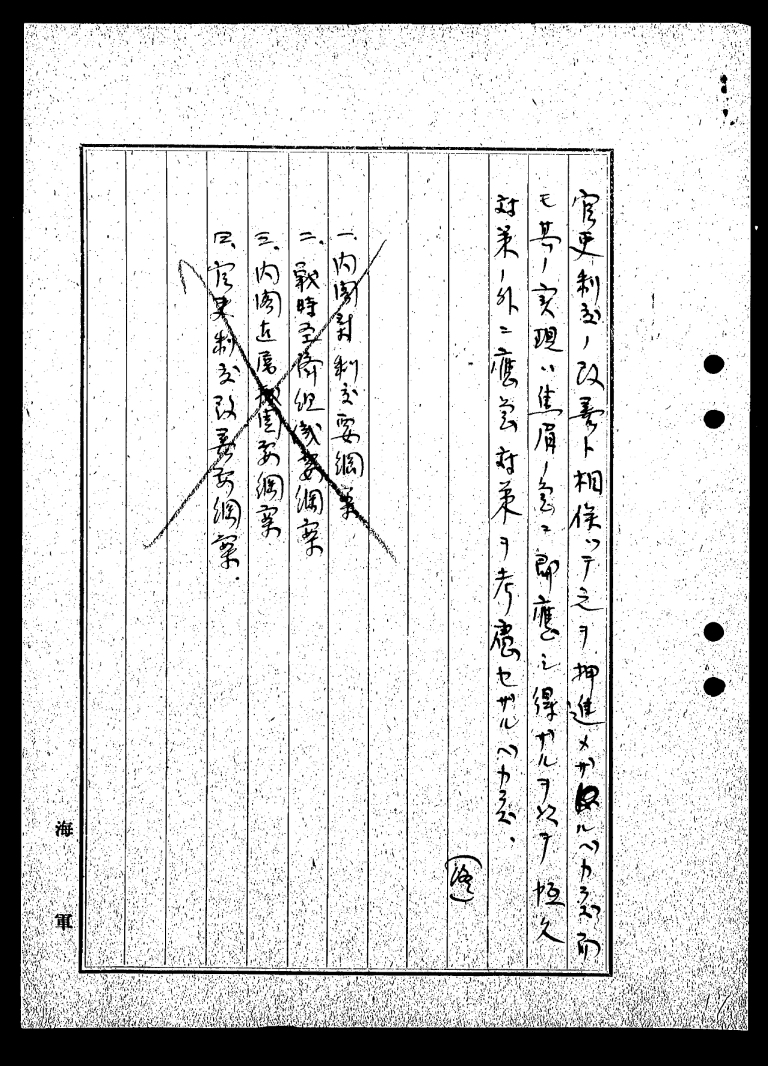 官吏制度ノ改善ト相俟ツテ之ヲ押進メザルベカラズ而
モ其ノ実現ハ焦眉ノ急ニ即應シ得ザルヲ以テ恒久
対策ノ外ニ應急対策ヲ考慮セザルベカラズ、
(終)
一、内閣制度要綱案
二、戦時経済組織要綱案
三、内閣直属機関要綱案
四、官吏制度改善要綱案.
海軍